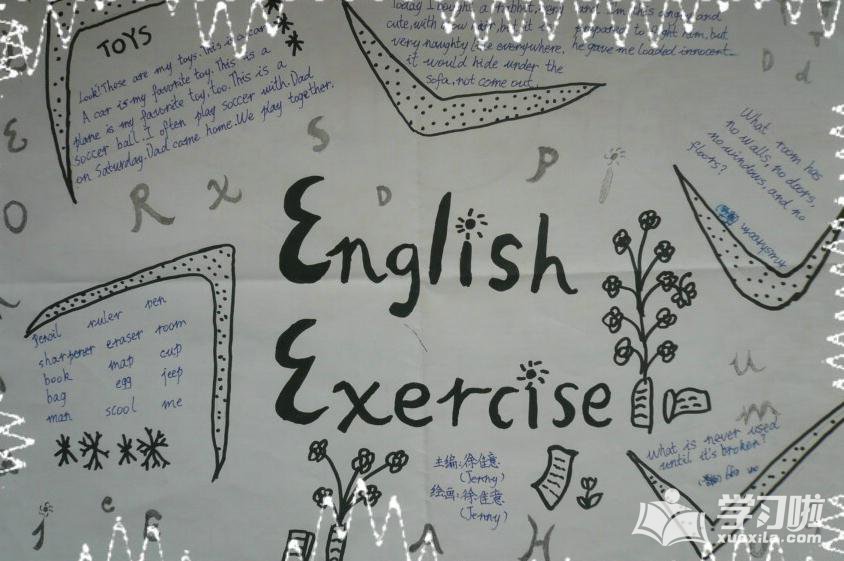 TOYS
Look! These are my toys. This is a car.
A car is my favorite toy. This is a
plane is my favorite toy, too. This is a
soccer ball. I often play soccer with Dad
on Saturday. Dad came home. We play together.
Today I bought a rabbit, very
cute, with
very naughty everywhere,
it would hide under the
sofa, not come out.
and
prepared to him, but
he gave me loaded innocent
What room has
no walls, no doors,
no windows, and no
floors?
E
O
R
X
S
D
P
D
d
English
Exercise
pencil ruler pen
sharpener eraser room
book map cup
bag egg jeep
man scool me
主编:徐佳意
(Jenny)
绘画:徐佳意
(Jenny)
What is never used
until it's broken?
u
m
j
e
A
H
学习啦
xuexila.com